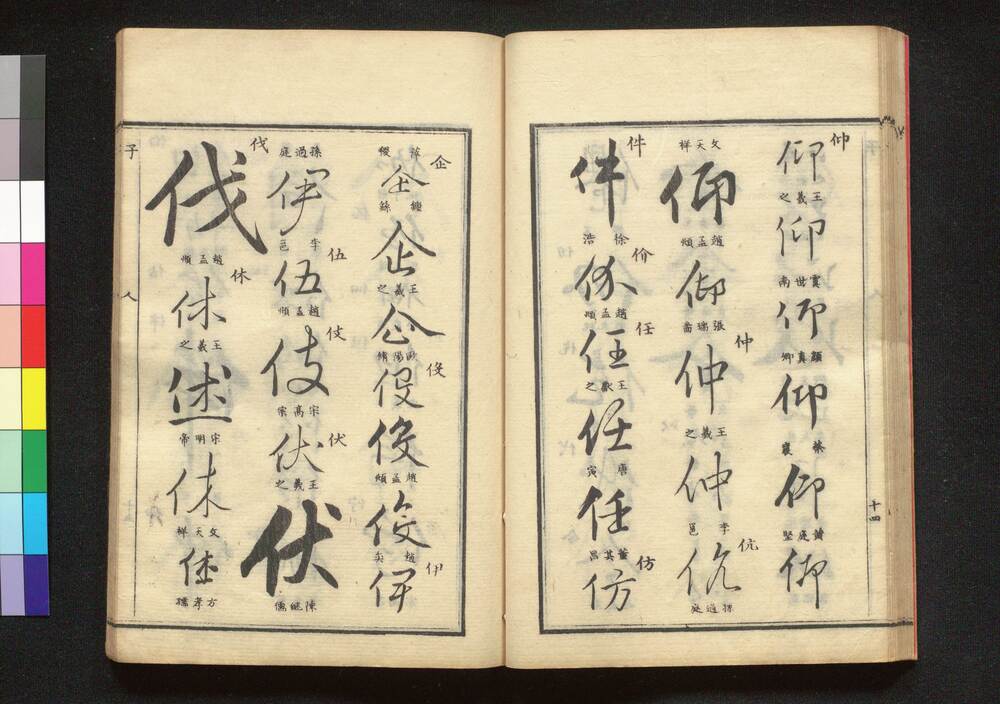 仰
仰
王羲之
仰
虞世南
仰
顏真卿
仰
蔡襄
仰
黃庭堅
仰
文天祥
仰
趙孟頫
仰
張瑞圖
仲
仲
王羲之
仲
李邕
伉
伉
孫過庭
件
件
徐浩
价
价
趙孟頫
任
任
王獻之
任
唐寅
任
董其昌
仿
仿
十四
企
企
企
王羲之
企
伇
趙孟頫
趙奕
伊
伊
孫過庭
伊
李邕
伍
伍
趙孟頫
伎
伎
宋高宗
伏
伏
王羲之
伏
陳繼儒
伐
伐
趙孟頫
休
休
王羲之
休
宋明帝
休
文天祥
休
方孝孺
子
人